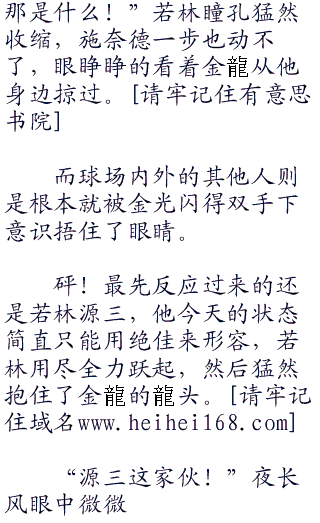 那是什么！”若林瞳孔猛然
收缩，施奈德一步也动不
了，眼睁睁的看着金龍从他
身边掠过。[请牢记住有意思
书院]
而球场内外的其他人则
是根本就被金光闪得双手下
意识捂住了眼睛。
砰！最先反应过来的还
是若林源三，他今天的状态
简直只能用绝佳来形容，若
林用尽全力跃起，然后猛然
抱住了金龍的龍头。[请牢记
住域名www.heihei168.com]
“源三这家伙！”夜长
风眼中微微